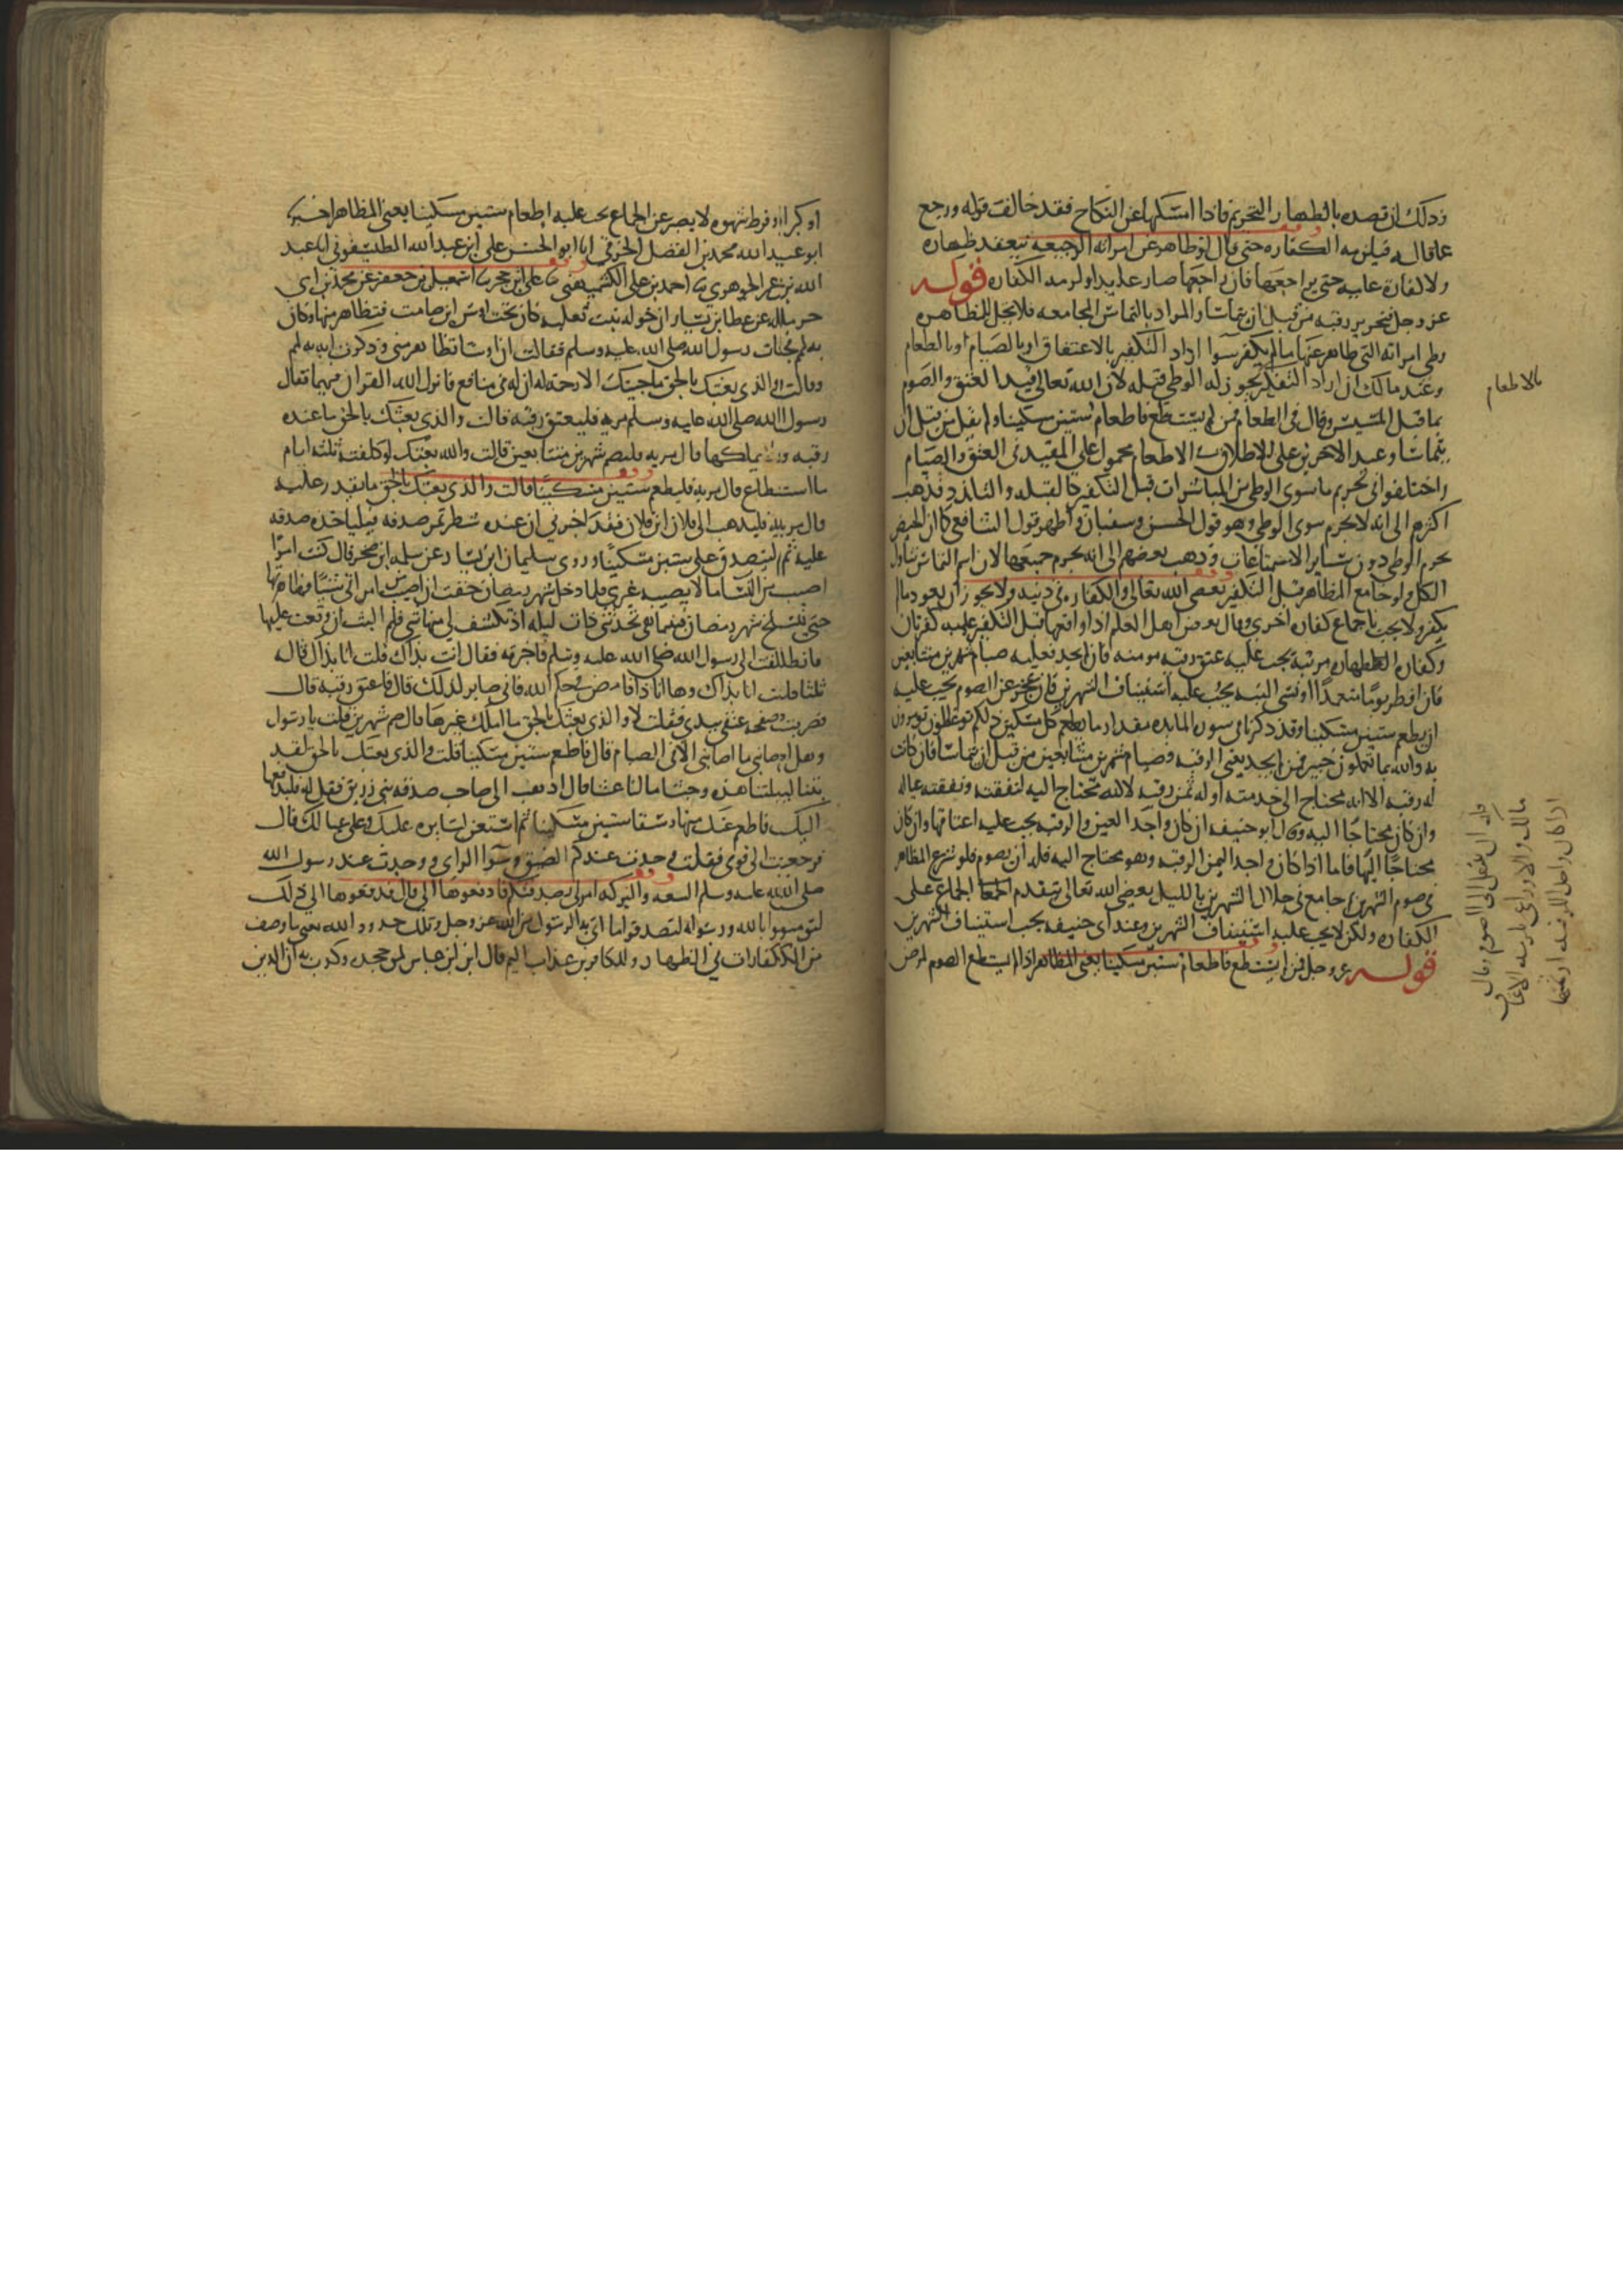 وذلك ان قصده بالظهار التحريم فاذا امسكها على النكاح فقد خالف قوله ورجع
عما قاله فيلزمه الكفاره حتى قال لو ظاهر عن امراته الرجعيه ينعقد ظهاره
ولا كفارة عليه حتى يراجعها فان راجعها صار عايدا ولزمه الكفاره قوله
عز وجل فتحرير رقبه من قبل ان يتماسا والمراد بالتماس المجامعه فلا يحل للمظاهر
وطى امراته التي ظاهر عنها ما لم يكفر سوا اراد التكفير بالاعتاق او بالصيام او بالطعام
وعند مالك ان اراد التكفير يجوز له الوطى قبله لان الله تعالى قيد العتق والصوم
بالاطعام
بما قبل المسيس وقال في الطعام فمن لم يستطع فاطعام ستين مسكينا ولم يقل من قبل ان
يتماسا وعند الاخرين على الاطلاق الاطعام محمول على المقيد في العتق والصيام
واختلفوا في تحريم ما سوى الوطى من المباشرات قبل التكفير كالقبله والتلذذ فذهب
اكثرهم الى انه لا يحرم سوى الوطى وهو قول الحسن وسفيان واظهر قول الشافعي كما ان الحيض
يحرم الوطى دون ساير الاستمتاعات وذهب بعضهم الى انه يحرم جميعها لان اسم التماس يتناول
الكل ولو جامع المظاهر قبل التكفير يعصى الله تعالى والكفاره في ذمته ولا يجوز ان يعود ما لم
يكفر ولا يجب بالجماع كفارة اخرى وقال بعض اهل العلم اذا واقعها قبل التكفير عليه كفرتان
وكفارة الظهار مرتبه يجب عليه عتق رقبه مومنه فان لم يجد فعليه صيام شهرين متتابعين
فان افطر يوما متعمدا او نسى النيه يجب عليه استيناف الشهرين فان عجز عن الصوم يجب عليه
ان يطعم ستين مسكينا وقد ذكرنا في سورة المايده مقدار ما يطعم كل مسكين ذلكم توعظون تومرون
به والله بما تعملون خبير فمن لم يجد يعني الرقبه فصيام شهرين متتابعين من قبل ان يتماسا فان كانت
له رقبه الا انه محتاج الى خدمته او له ثمن رقبه لاكنه محتاج اليه لنفقته ونفقة عياله
وان كان محتاجا اليه وقال ابو حنيفه ان كان واجدا لعين الرقبه يجب عليه اعتاقها وان كان
محتاجا اليها فاما اذا كان واجدا ثمن الرقبه وهو محتاج اليه فله ان يصوم فلو شرع المظاهر
في صوم الشهرين ثم جامع في خلال الشهرين بالليل يعصى الله تعالى بتقدم الجماع على
الكفاره ولكن لا يجب عليه استيناف الشهرين وعند ابي حنيفه يجب استيناف الشهرين
قوله عز وجل فمن لم يستطع فاطعام ستين مسكينا يعني المظاهر اذا لم يستطع الصوم لمرض
فله ان ينتقل الى الصوم وقال
مالك والاوزاعي يلزمه الاعتاق
اذا كان واجدا للرقبه او ثمنها
او كبر او فرط شهوه لا يصبر عن الجماع يجب عليه اطعام ستين مسكينا يعني المظاهر اخبرنا
ابو عبد الله محمد بن الفضل الخرقي انا ابو الحسن علي ابن عبد الله الطيسفوني انا عبد
الله بن عمر الجوهري نا احمد بن علي الكشميهني نا علي ابن حجر نا اسمعيل بن جعفر عن محمد بن ابي
حرمله عن عطا بن يسار ان خوله بنت ثعلبه كانت تحت اوس ابن صامت فتظاهر منها وكان
به لمم فجات رسول الله صلى الله عليه وسلم فقالت ان اوسا تظاهر مني وذكرت ان به لمم
وقالت والذي بعثك بالحق ما جيتك الا رحمة له ان له في منافع فانزل الله القران فيهما فقال
رسول الله صلى الله عليه وسلم مريه فليعتق رقبه قالت والذي بعثك بالحق ما عنده
رقبه ولا يملكها قال مريه فليصم شهرين متتابعين قالت والله بعثك لو كلفته ثلثه ايام
ما استطاع قال مريه فليطعم ستين مسكينا قالت والذي بعثك بالحق ما يقدر عليه
قال مريه فليذهب الى فلان ابن فلان فقد اخبرني ان عنده شطر تمر صدقه فلياخذه صدقه
عليه ثم ليتصدق على ستين مسكينا وروى سليمان ابن يسار عن سلمه ابن صخر قال كنت امرا
اصيب من النسا ما لا يصيب غيري فلما دخل شهر رمضان خفت ان اصيب من امراتي شيا فظاهرتها
حتى ينسلخ شهر رمضان فبينما هي تحدثني ذات ليلة اذ تكشف لي منها شي فلم البث ان وقعت عليها
فانطلقت الى رسول الله صلى الله عليه وسلم فاخبرته فقال انت بذاك قلت انا بذاك قاله
ثلثا قلت انا بذاك وها انا ذا فامض في حكم الله فاني صابر لذلك قال فاعتق رقبه قال
فضربت صفحه عنقي بيدي فقلت لا والذي بعثك بالحق ما املك غيرها قال صم شهرين قلت يا رسول
وهل اصابني ما اصابني الا في الصيام قال فاطعم ستين مسكينا قلت والذي بعثك بالحق لقد
بتنا ليلتنا هذه وحشا ما لنا عشا قال اذهب الى صاحب صدقه بني زريق فقل له فليدفعها
اليك فاطعم عنك منها وسقا ستين مسكينا ثم استعن بسايره عليك وعلى عيالك قال
فرجعت الى قومي فقلت وجدت عندكم الضيق وسوا الراى ووجدت عند رسول الله
صلى الله عليه وسلم السعه والبركه امر لي بصدقتكم فادفعوها الي قال فدفعوها الي ذلك
لتومنوا بالله ورسوله لتصدقوا ما اتى به الرسول من الله عز وجل وتلك حدود الله يعني ما وصف
من الكفارات في الظهار وللكافرين عذاب اليم قال ابن عباس لمن جحده وكذب به ان الذين